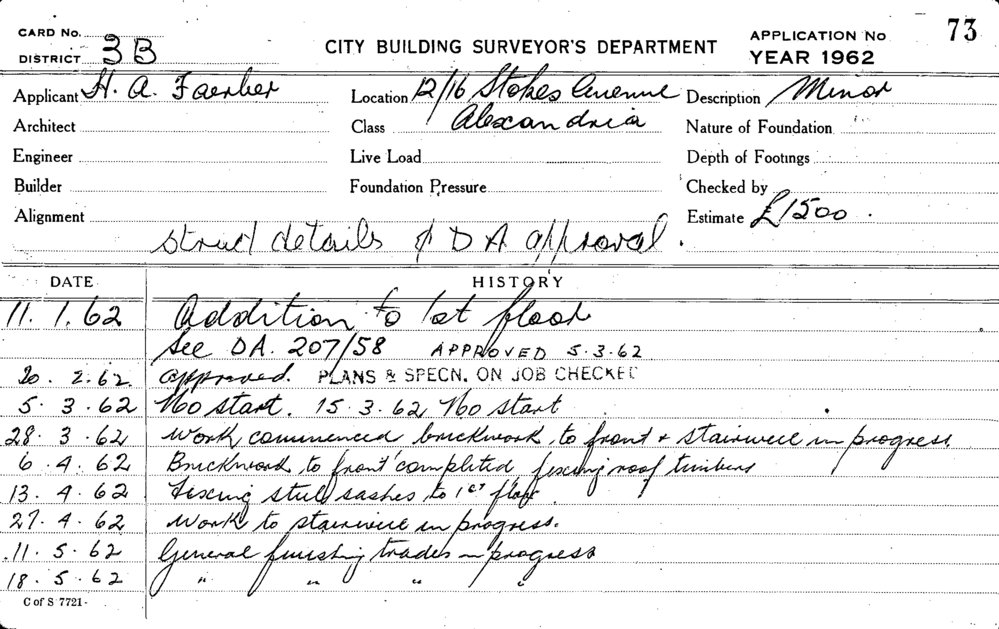 CARD No. APPLICATION No 73
DISTRICT 3B CITY BUILDING SURVEYOR'S DEPARTMENT YEAR 1962
Applicant H. A. Faerber Location 12/16 Stokes Avenue Description Minor
Architect Class Alexandria Nature of Foundation
Engineer Live Load Depth of Footings
Builder Foundation Pressure Checked by
Alignment Estimate £1500.
struct details & DA approval.
DATE HISTORY
11. 1. 62 Addition to 1st floor
See DA. 207/58 APPROVED 5.3.62
20. 2. 62 approved. PLANS & SPECN. ON JOB CHECKED
5. 3. 62 No start. 15. 3. 62 No start
28. 3. 62 Work commenced brickwork to front + stairwell in progress.
6. 4. 62 Brickwork to front completed fixing roof timbers
13. 4. 62 Fixing steel sashes to 1st floor.
27. 4. 62 Work to stairwell in progress.
11. 5. 62 General finishing trades in progress
18. 5. 62 " " " "
C of S 7721